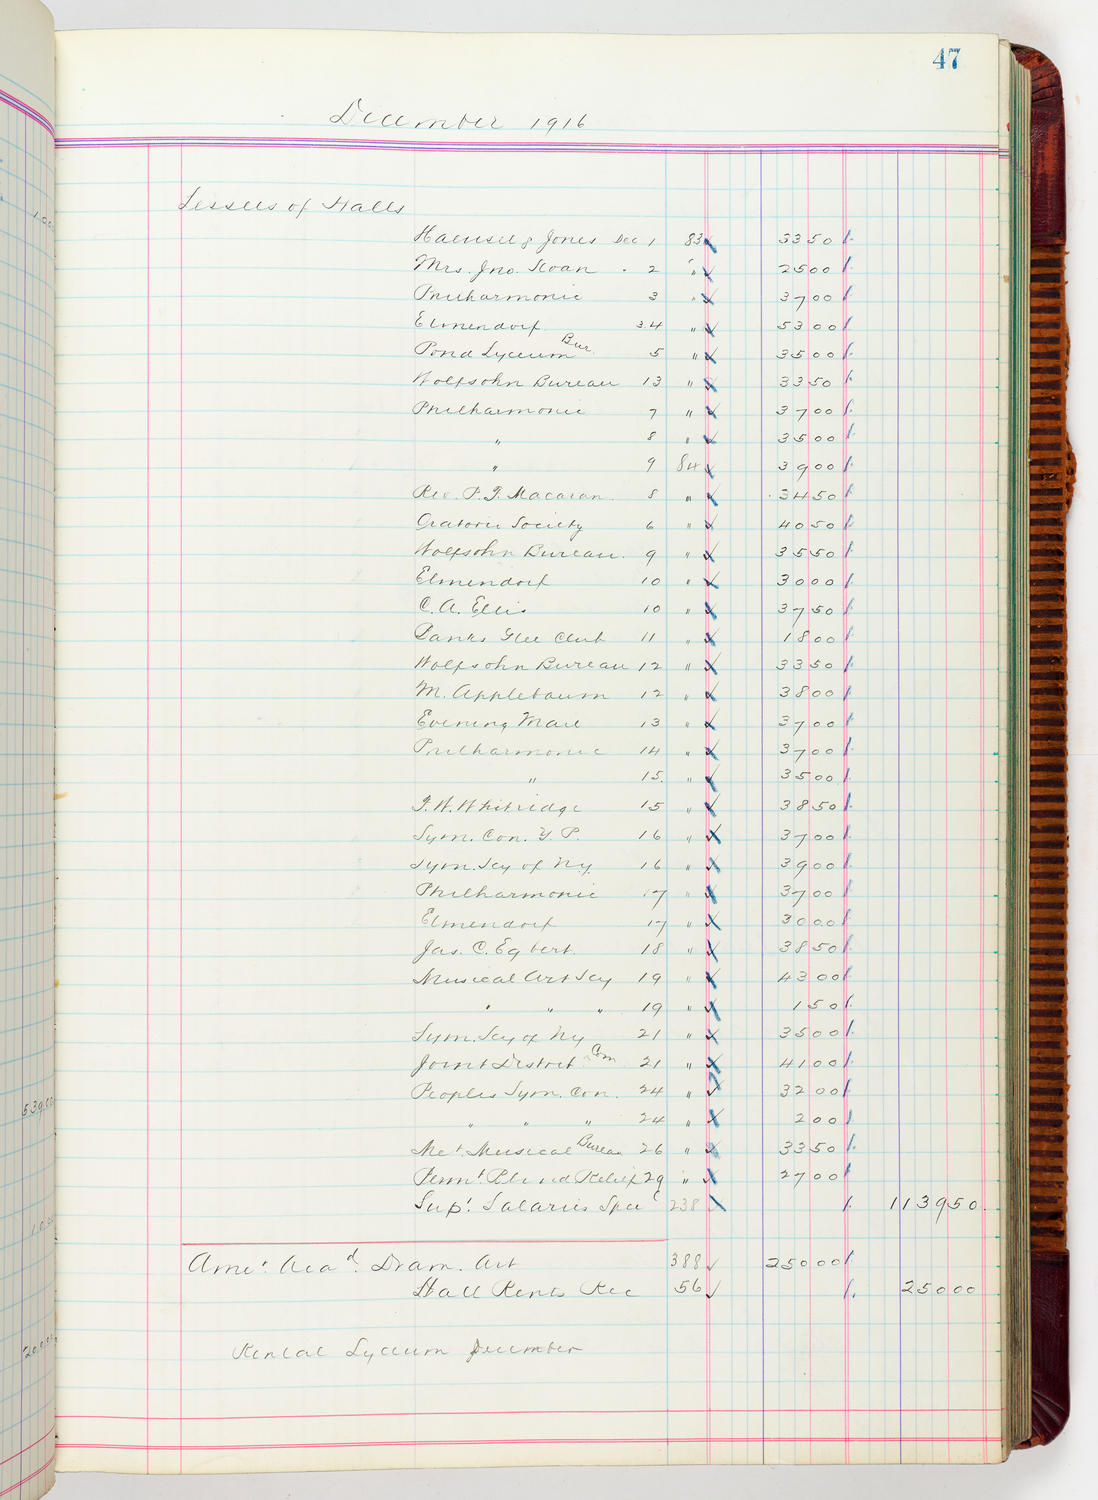 47
December 1916
Lessees of Halls
Haensel & Jones Dec 1 83 3350
Mrs. Jno. Sloan " 2 " 2500
Philharmonic 3 " 3700
Elmendorf 3.4 " 5300
Pond Lyceum Bur. 5 " 3500
Wolfsohn Bureau 13 " 3350
Philharmonic 7 " 3700
" 8 " 3500
" 9 84 3900
Rev. P. J. 8 " 3450
Oratorio Society 6 " 4050
Wolfsohn Bureau. 9 " 3550
Elmendorf 10 " 3000
C. A. Ellis 10 " 3750
Banks Glee Club 11 " 1800
Wolfsohn Bureau 12 " 3350
M. Applebaum 12 " 3800
Evening Mail 13 " 3700
Philharmonic 14 " 3700
" 15. " 3500
F. W. Whitridge 15 " 3850
Sym. Con. Y. P. 16 " 3700
Sym. Scy of N.Y. 16 " 3900
Philharmonic 17 " 3700
Elmendorf 17 " 3000
Jas. C. Egbert. 18 " 3850
Musical Art Scy 19 " 4300
" " " 19 " 150
Sym. Scy of Ny 21 " 3500
Joint Distrbt Com 21 " 4100
Peoples Sym. Con. 24 " 3200
" " " 24 " 200
Met. Musical Bureau 26 " 3350
Permt Blind Relief 29 " 2700
Supt. Salaries Specl 238 113950
Amer. Acad. Dram. Art 388 25000
Hall Rents Rec 56 25000
Rental Lyceum December
53900
20000